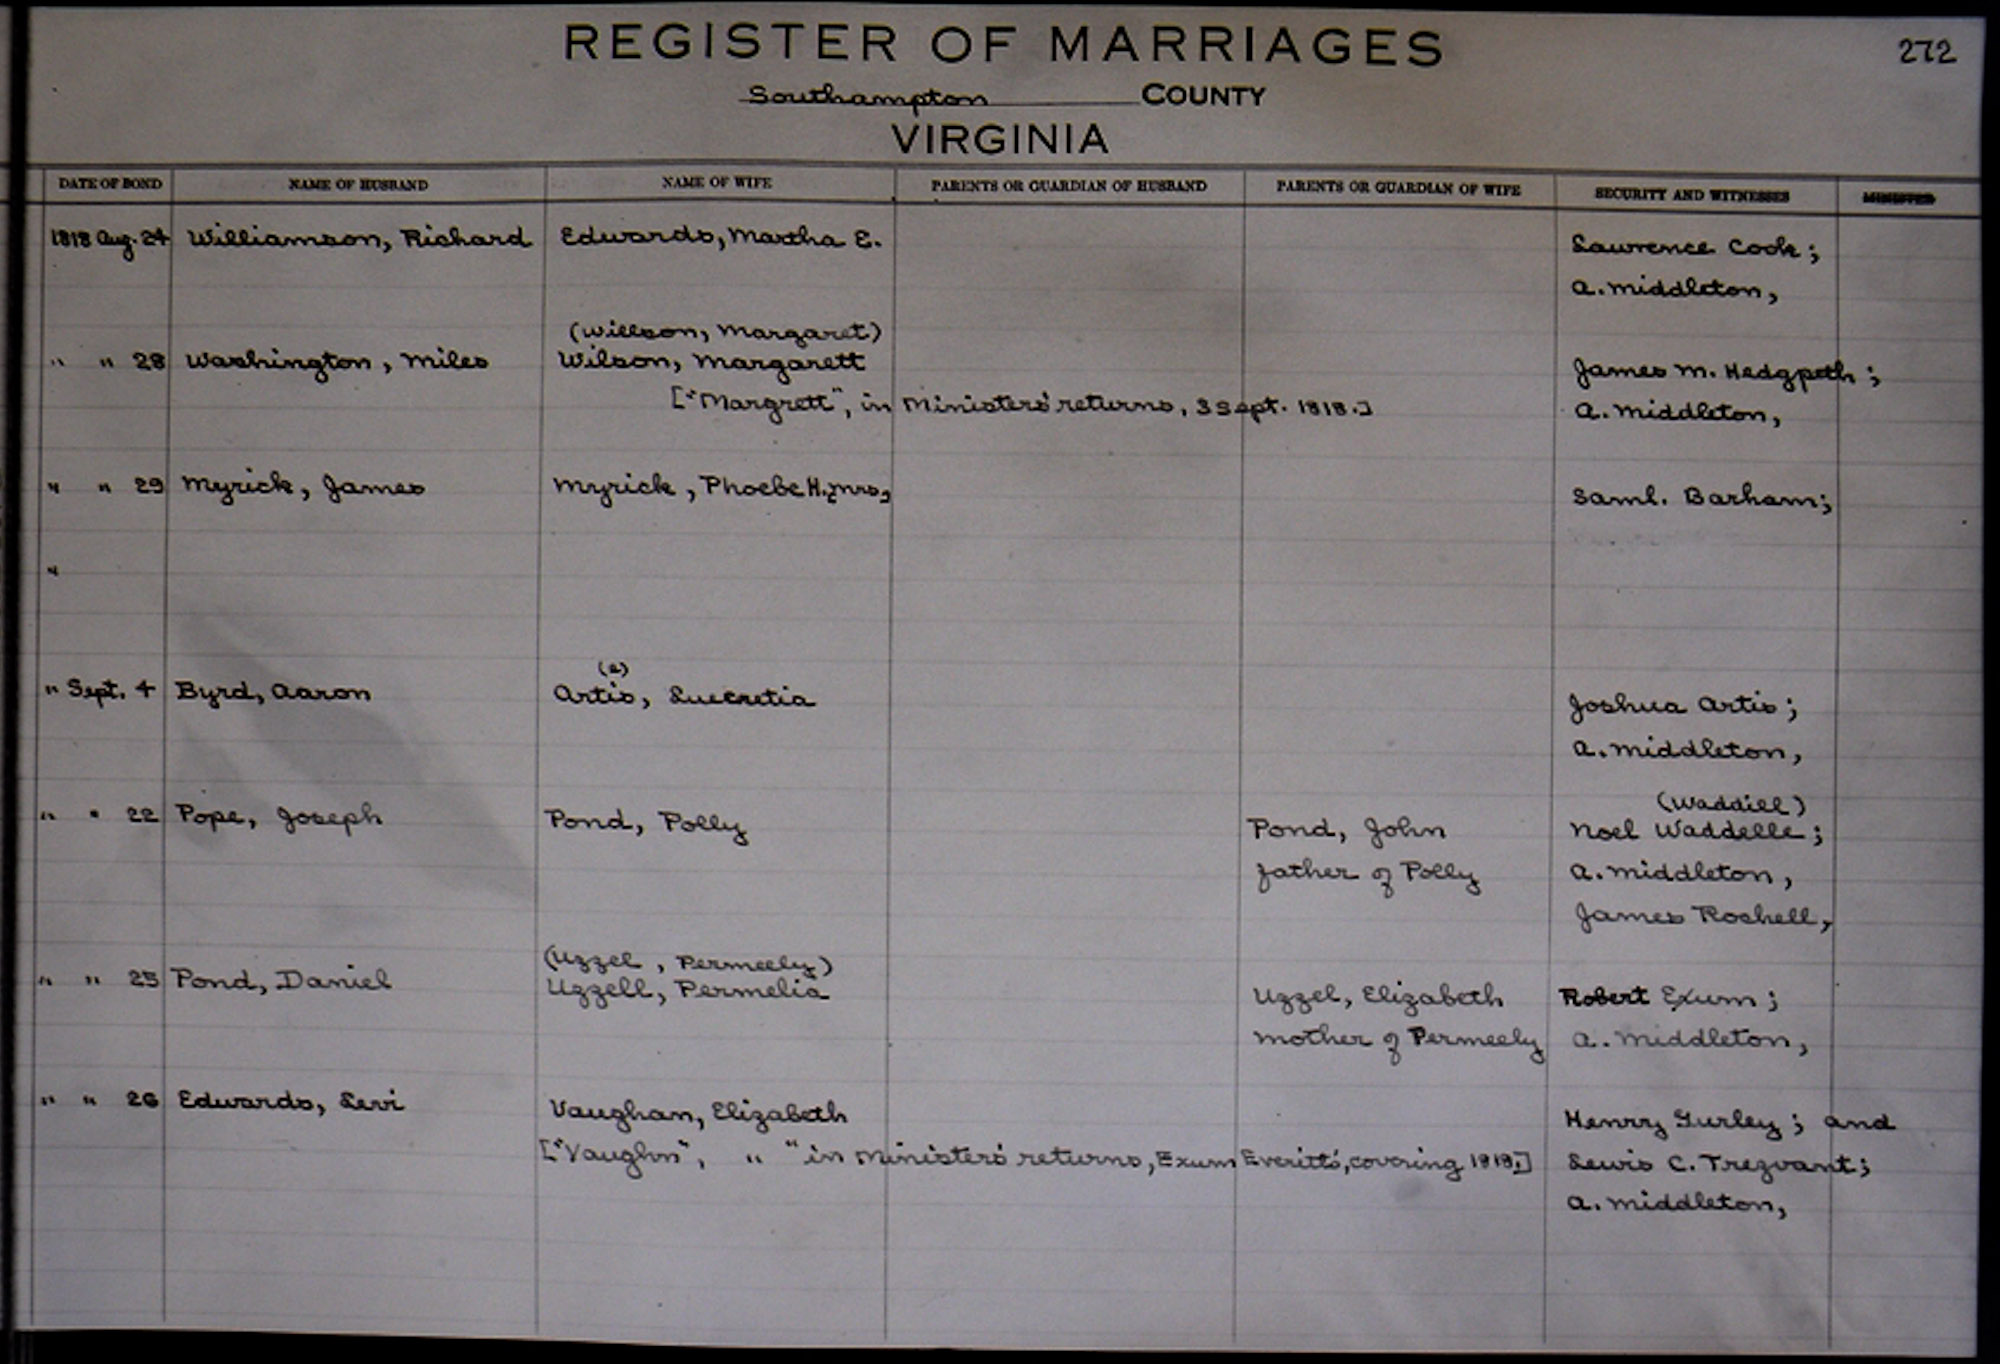 REGISTER OF MARRIAGES
272
Southampton COUNTY
VIRGINIA
DATE OF BOND NAME OF HUSBAND NAME OF WIFE PARENTS OR GUARDIAN OF HUSBAND PARENTS OR GUARDIAN OF WIFE SECURITY AND WITNESSES MINISTER
1818 Aug. 24 Williamson, Richard Edwards, Martha E. Lawrence Cook;
A. Middleton,
(Willson, Margaret)
" " 28 Washington, Miles Wilson, Margarett James M. Hedgpeth;
["Margrett", in Ministers' returns, 3 Sept. 1818.] A. Middleton,
" " 29 Myrick, James Myrick, Phoebe H., Mrs., Saml. Barham;
"
(e)
" Sept. 4 Byrd, Aaron Artis, Luecretia Joshua Artis;
A. Middleton,
(Waddill)
" " 22 Pope, Joseph Pond, Polly Pond, John Noel Waddelle;
father of Polly A. Middleton,
James Rochell,
(Uzzel, Permeely)
" " 25 Pond, Daniel Uzzell, Permelia Uzzel, Elizabeth Robert Exum;
mother of Permeely A. Middleton,
" " 26 Edwards, Levi Vaughan, Elizabeth Henry Gurley; and
["Vaughn", " " in Ministers' returns, Exum Everitt's, covering 1818.] Lewis C. Trezvant;
A. Middleton,